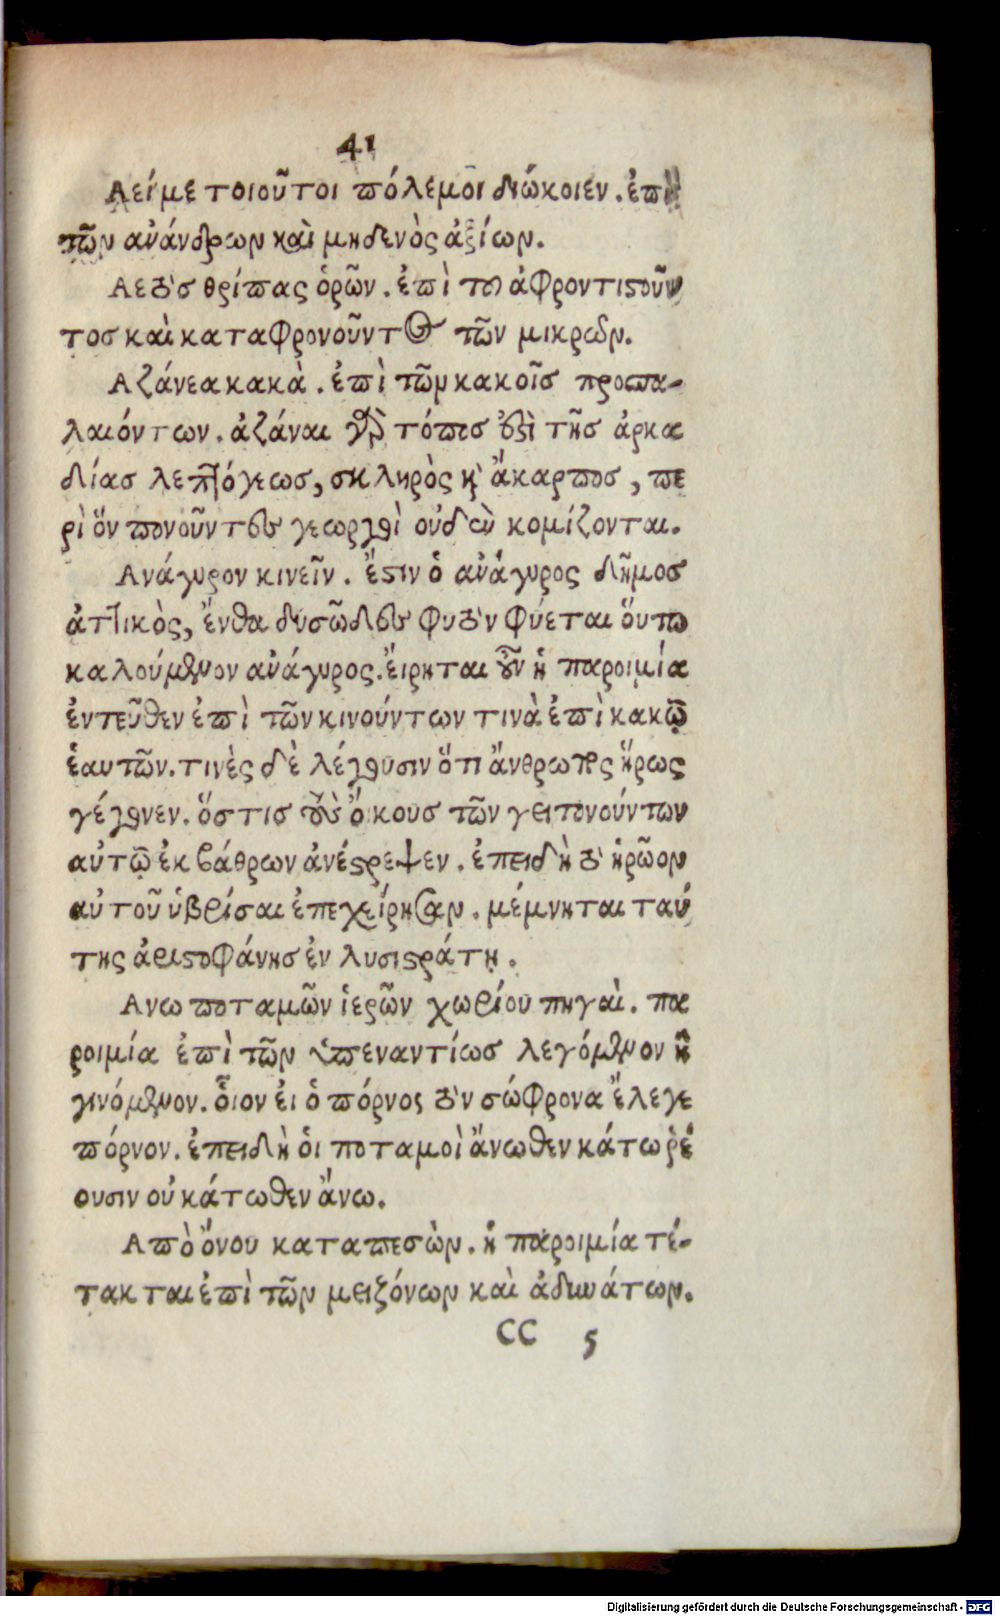 41
Αεί με τοιοῦτοι πόλεμοι διώκοιεν. ἐπὶ
τῶν ἀνάνδρων καὶ μηδενὸς ἀξίων.
Αετὸσ θρίπας ὁρῶν. ἐπὶ τοῦ ἀφροντιστοῦν
τοσ καὶ καταφρονοῦντος τῶν μικρῶν.
Αζάνεα κακὰ. ἐπὶ τῶν κακοῖσ προσπα-
λαιόντων. ἀζάναι γὰρ τόποσ ἐστὶ τῆσ ἀρκα
δίας λεπτόγεωσ, σκληρὸς καὶ ἄκαρποσ, πε
ρὶ ὅν πονοῦντες γεωργοὶ οὐδὲν κομίζονται.
Ανάγυρον κινεῖν. ἔστιν ὁ ἀνάγυρος δῆμοσ
ἀττικὸς, ἔνθα δυσῶδες φυτὸν φύεται ὅυτω
καλούμενον ἀνάγυρος. ἔιρηται οὖν ἡ παροιμία
ἐντεῦθεν ἐπὶ τῶν κινούντων τινὰ ἐπὶ κακῷ
ἑαυτῶν. τινὲς δὲ λέγουσιν ὅτι ἄνθρωπος ἥρως
γέγονεν. ὅστισ τοὺς ὄικους τῶν γειτονούντων
αὐτῷ ἐκ βάθρων ἀνέστρεψεν. ἐπειδὴ τὸ ἡρῶον
αὐτοῦ ὑβρίσαι ἐπεχείρησαν. μέμνηται ταύ
της ἀριστοφάνησ ἐν λυσιστράτῃ.
Ανω ποταμῶν ἱερῶν χωρίου πηγαὶ. πα
ροιμία ἐπὶ τῶν ὑπεναντίωσ λεγόμενον ἢ
γινόμενον. ὅιον ἐι ὁ πόρνος τὸν σώφρονα ἔλεγε
πόρνον. ἐπειδὴ ὁι ποταμοὶ ἄνωθεν κάτω ῥέ
ουσιν οὐ κάτωθεν ἄνω.
Απὸ ὄνου καταπεσὼν. ἡ παροιμία τέ-
τακται ἐπὶ τῶν μειζόνων καὶ ἀδυνάτων.
CC 5
Digitalisierung gefördert durch die Deutsche Forschungsgemeinschaft - DFG